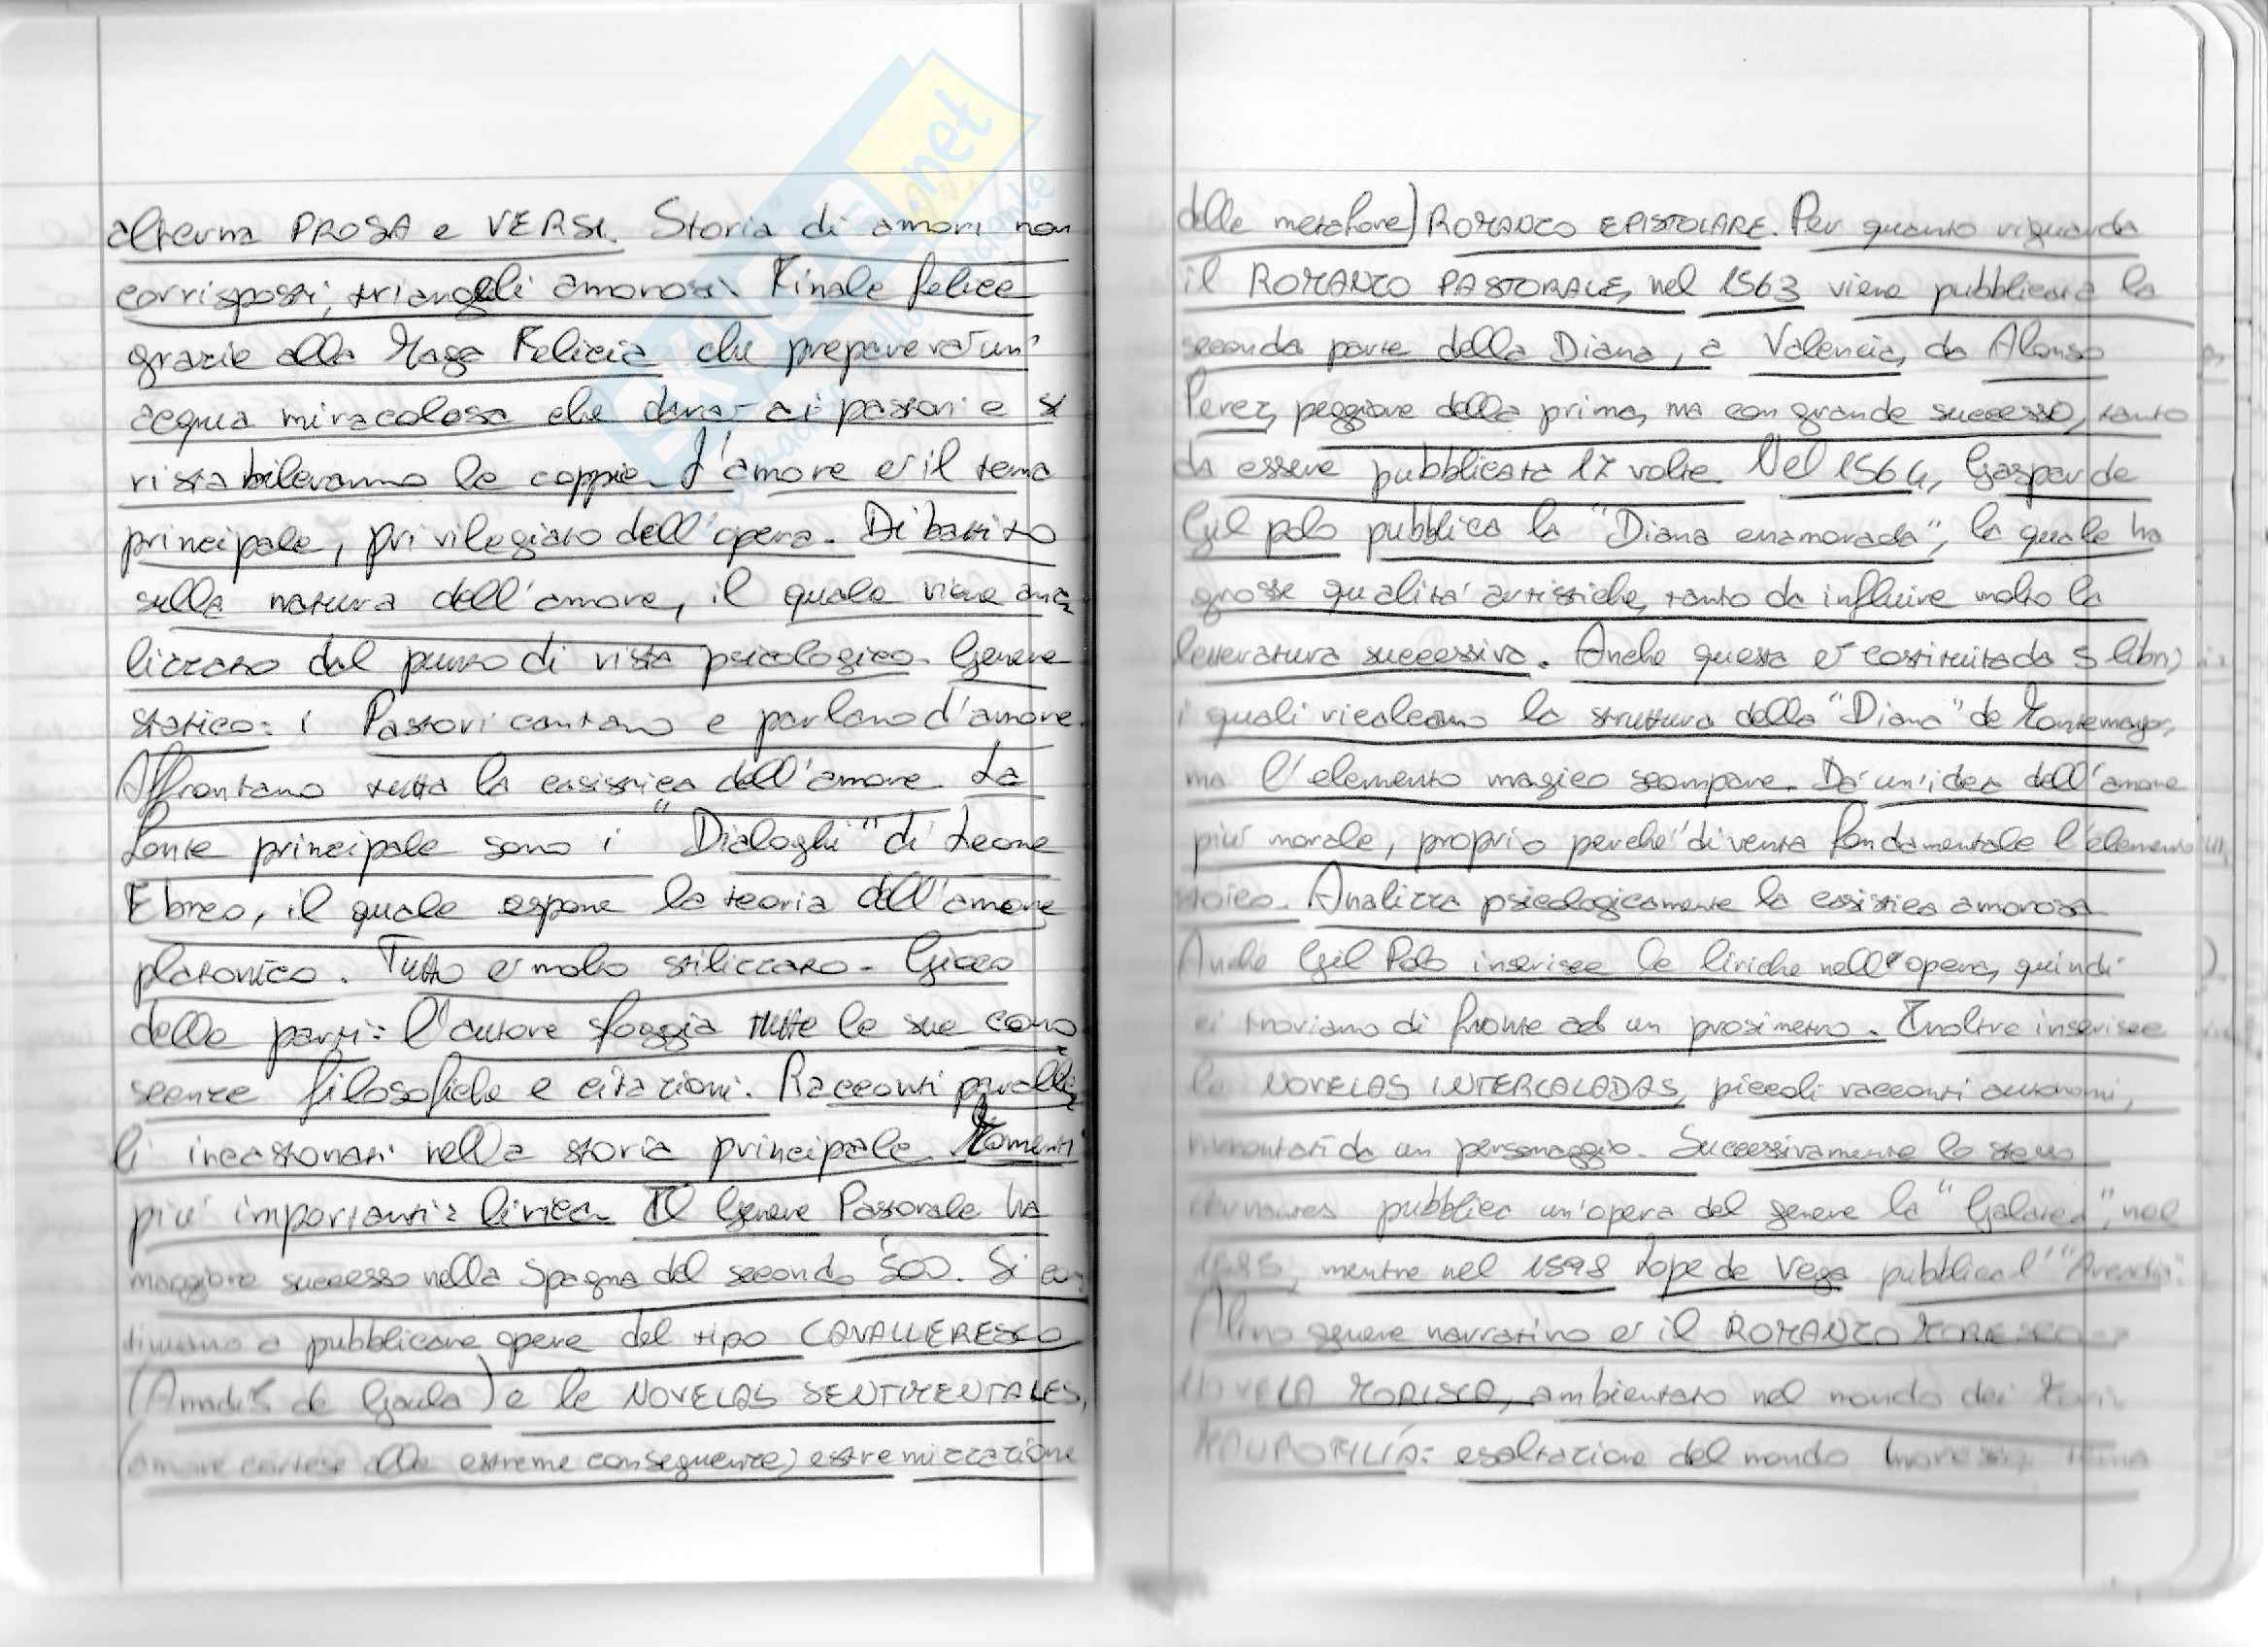 alterna PROSA e VERSI. Storia di amori non
corrisposti, triangoli amorosi. Finale felice
grazie alla Maga Felicia che preparerà un'
acqua miracolosa che darà ai pastori e si
ristabileranno le coppie. L'amore è il tema
principale, privilegiato dell'opera. Dibattito
sulla natura dell'amore, il quale viene ana
lizzato dal punto di vista psicologico. Genere
statico: i Pastori cantano e parlano d'amore.
Affrontano tutta la casistica dell'amore. La
fonte principale sono i "Dialoghi" di Leone
Ebreo, il quale espone la teoria dell'amore
platonico. Tutto è molto stilizzato. Gioco
delle parti: l'autore sfoggia tutte le sue cono
scenze filosofiche e citazioni. Racconti paralle
li incastonati nella storia principale. Momenti
più importanti: lirica. Il Genere Pastorale ha
maggiore successo nella Spagna del secondo '500. Si con
tinuano a pubblicare opere del tipo CAVALLERESCO
(Amadís de Gaula) e le NOVELAS SENTIMENTALES,
(amore cortese alle estreme conseguenze, estremizzazione
delle metafore) ROMANZO EPISTOLARE. Per quanto riguarda
il ROMANZO PASTORALE, nel 1563 viene pubblicata la
seconda parte della Diana, a Valencia, da Alonso
Perez, peggiore della prima, ma con grande successo, tanto
da essere pubblicata 17 volte. Nel 1564, Gaspar de
Gil polo pubblica la "Diana enamorada", la quale ha
grosse qualità artistiche, tanto da influire molto la
letteratura successiva. Anche questa è costituita da 5 libri,
i quali ricalcano la struttura della "Diana" de Montemayor,
ma l'elemento magico scompare. Dà un'idea dell'amore
più morale, proprio perché diventa fondamentale l'elemento
stoico. Analizza psicologicamente la casistica amorosa.
Anche Gil Polo inserisce le liriche nell'opera, quindi
ci troviamo di fronte ad un prosimetro. Inoltre inserisce
le NOVELAS INTERCALADAS, piccoli racconti autonomi,
raccontati da un personaggio. Successivamente lo stesso
Cervantes pubblica un'opera del genere la "Galatea", nel
1585, mentre nel 1598 Lope de Vega pubblica l'"Arcadia".
Altro genere narrativo è il ROMANZO MORESCO o
NOVELA MORISCA, ambientato nel mondo dei Mori.
MAUROFILÍA: esaltazione del mondo moresco,